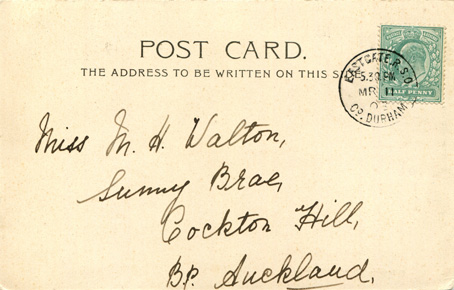 POST CARD.
THE ADDRESS TO BE WRITTEN ON THIS SIDE
EASTGATE. R.S.O
5.30 PM
MR 11
CO. DURHAM
HALF PENNY
Miss M. H. Walton,
Sunny Brae,
Cockton Hill,
Bp. Auckland.